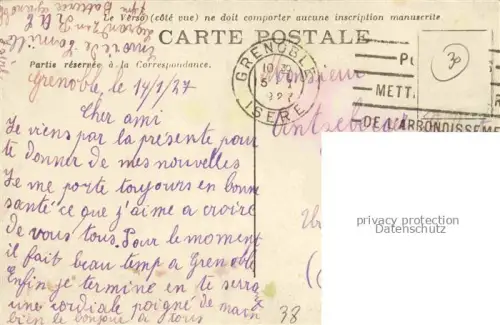 Le Verso (côté vue) ne doit comporter aucune inscription manuscrite.
CARTE POSTALE
Partie réservée à la Correspondance.
GRENOBLE
ISERE
METT
DE L'ARRONDISSEME
30
Monsieur
Grenoble, le 14/1/27
Cher ami
Je viens par la présente pour
te donner de mes nouvelles
Je me porte toujours en bonne
santé ce que j'aime a croire
de vous tous. Pour le moment
il fait beau temp a Grenoble
Enfin je termine en te serra
une cordiale poigné de main
bien le bonjour a tous
38
privacy protection
Datenschutz